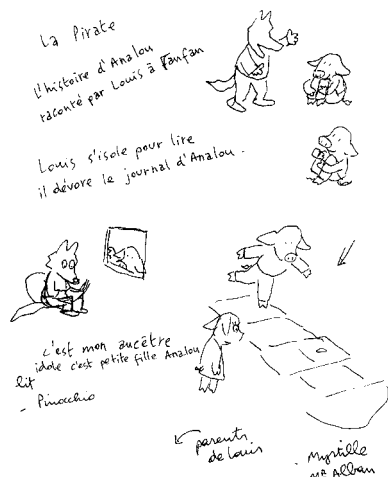 La Pirate
L'histoire d'Analou
raconté par Louis à Fanfan
Louis s'isole pour lire
il dévore le journal d'Analou.
c'est mon ancêtre
idole c'est petite fille Analou
lit
- Pinocchio
parents
de Louis
- Myrtille
Mr Alban